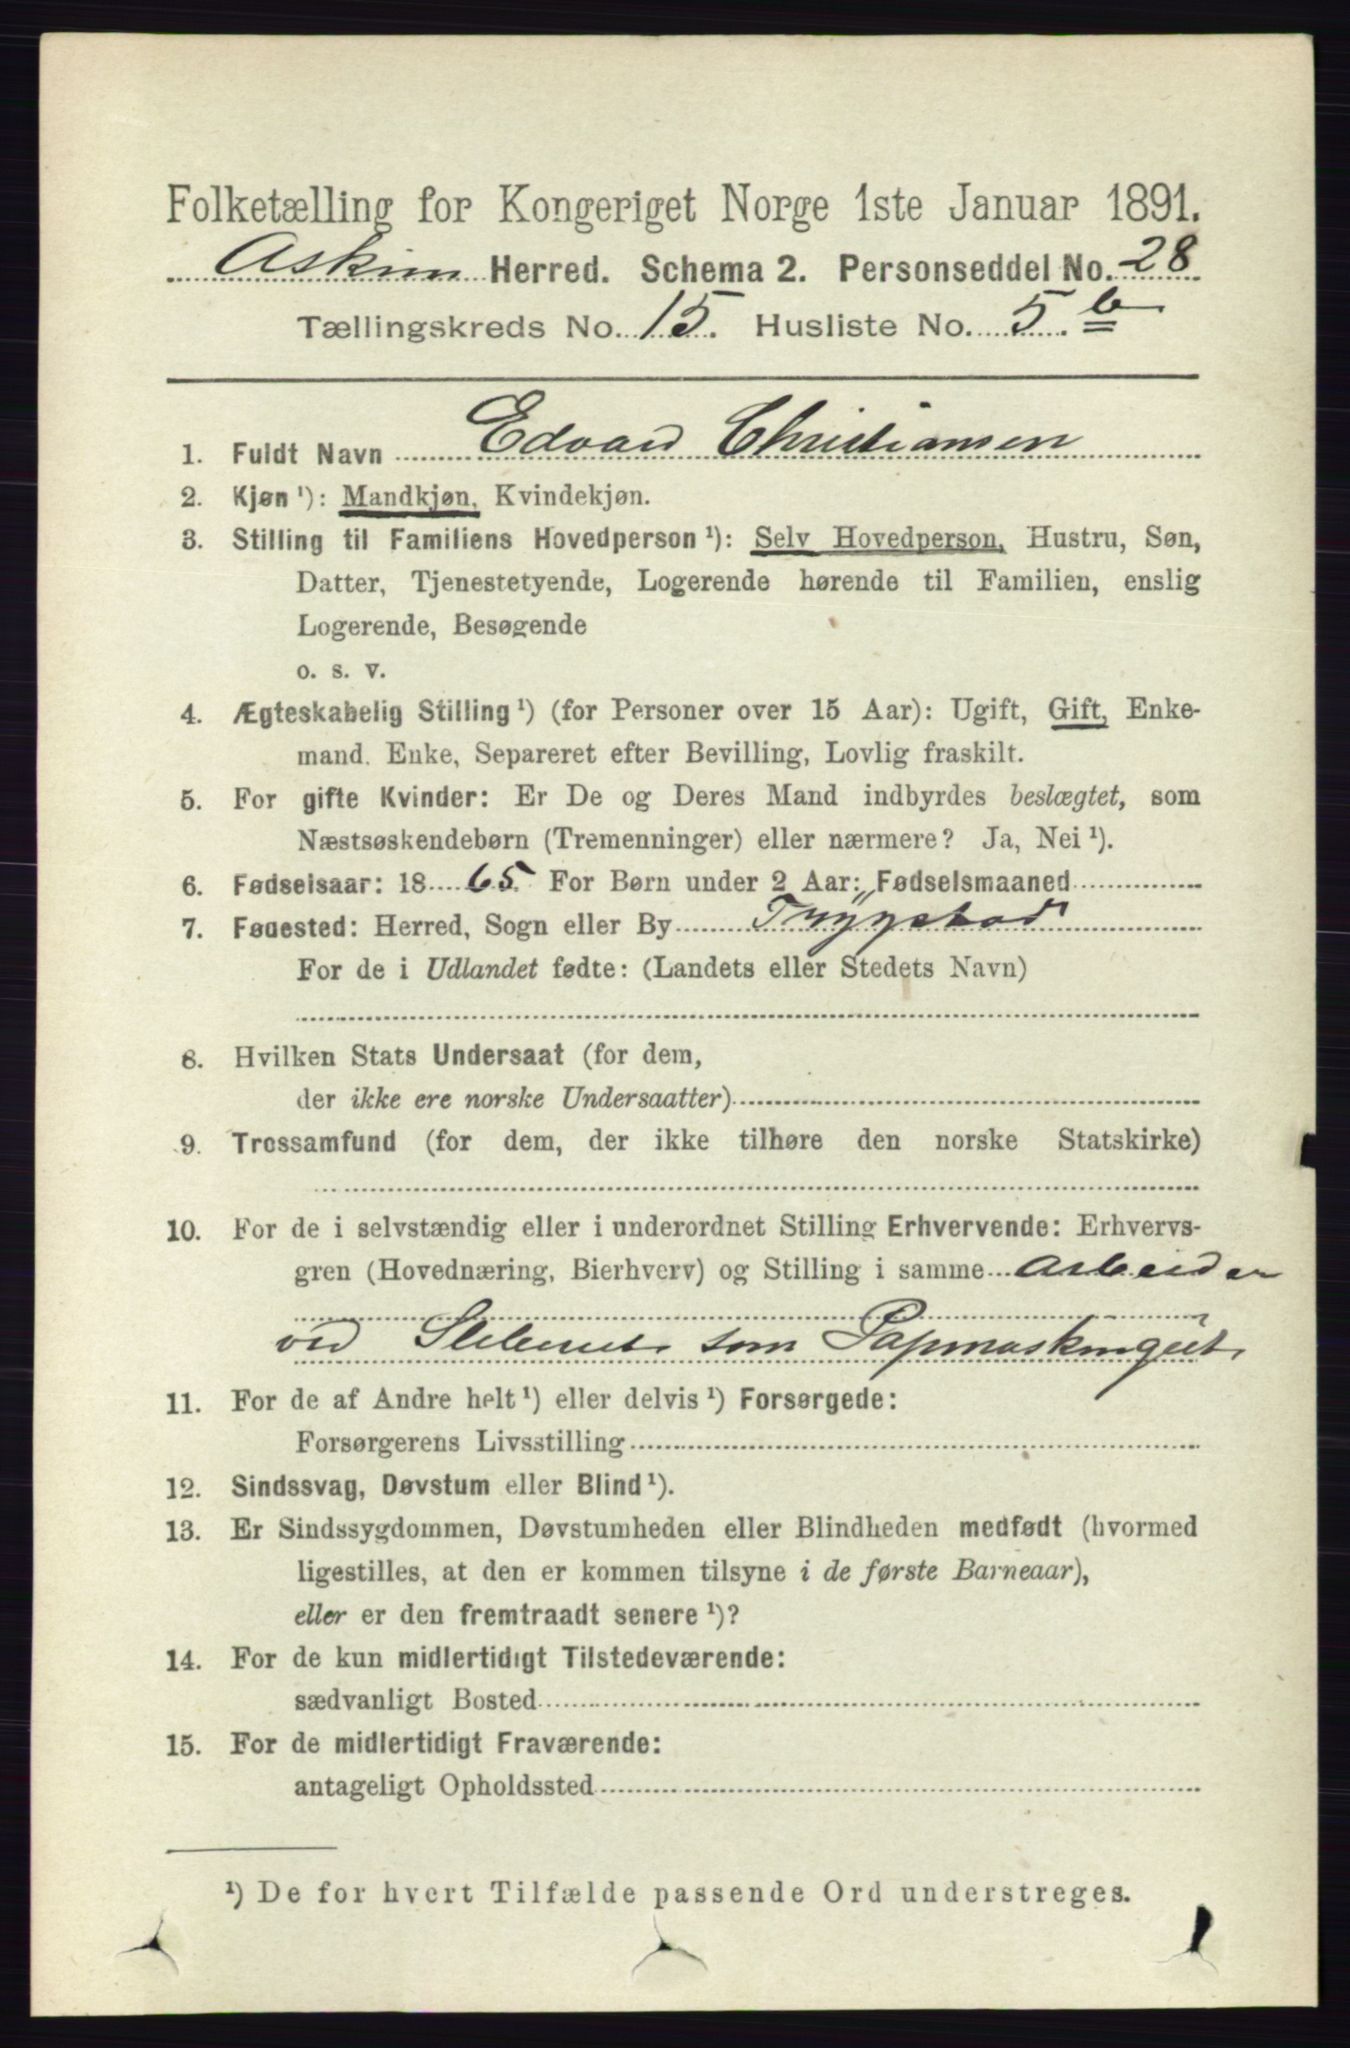 Folketælling for Kongeriget Norge 1ste Januar 1891.
Askim Herred. Schema 2. Personseddel No. 28
Tællingskreds No. 15. Husliste No. 5. b
1. Fuldt Navn Edvard Christiansen
2. Kjøn ¹): Mandkjøn, Kvindekjøn.
3. Stilling til Familiens Hovedperson ¹): Selv Hovedperson, Hustru, Søn,
Datter, Tjenestetyende, Logerende hørende til Familien, enslig
Logerende, Besøgende
o. s. v.
4. Ægteskabelig Stilling ¹) (for Personer over 15 Aar): Ugift, Gift, Enke-
mand. Enke, Separeret efter Bevilling, Lovlig fraskilt.
5. For gifte Kvinder: Er De og Deres Mand indbyrdes beslægtet, som
Næstsøskendebørn (Tremenninger) eller nærmere? Ja, Nei ¹).
6. Fødselsaar: 18 65. For Børn under 2 Aar: Fødselsmaaned
7. Føuested: Herred, Sogn eller By Trygstad
For de i Udlandet fødte: (Landets eller Stedets Navn)
8. Hvilken Stats Undersaat (for dem,
der ikke ere norske Undersaatter)
9. Trossamfund (for dem, der ikke tilhøre den norske Statskirke)
10. For de i selvstændig eller i underordnet Stilling Erhvervende: Erhvervs-
gren (Hovednæring, Bierhverv) og Stilling i samme Arbeider
ved Sliberiet som Papmaskingut
11. For de af Andre helt ¹) eller delvis ¹) Forsørgede:
Forsørgerens Livsstilling
12. Sindssvag, Døvstum eller Blind ¹).
13. Er Sindssygdommen, Døvstumheden eller Blindheden medfødt (hvormed
ligestilles, at den er kommen tilsyne i de første Barneaar),
eller er den fremtraadt senere ¹)?
14. For de kun midlertidigt Tilstedeværende:
sædvanligt Bosted
15. For de midlertidigt Fraværende:
antageligt Opholdssted
¹) De for hvert Tilfælde passende Ord understreges.